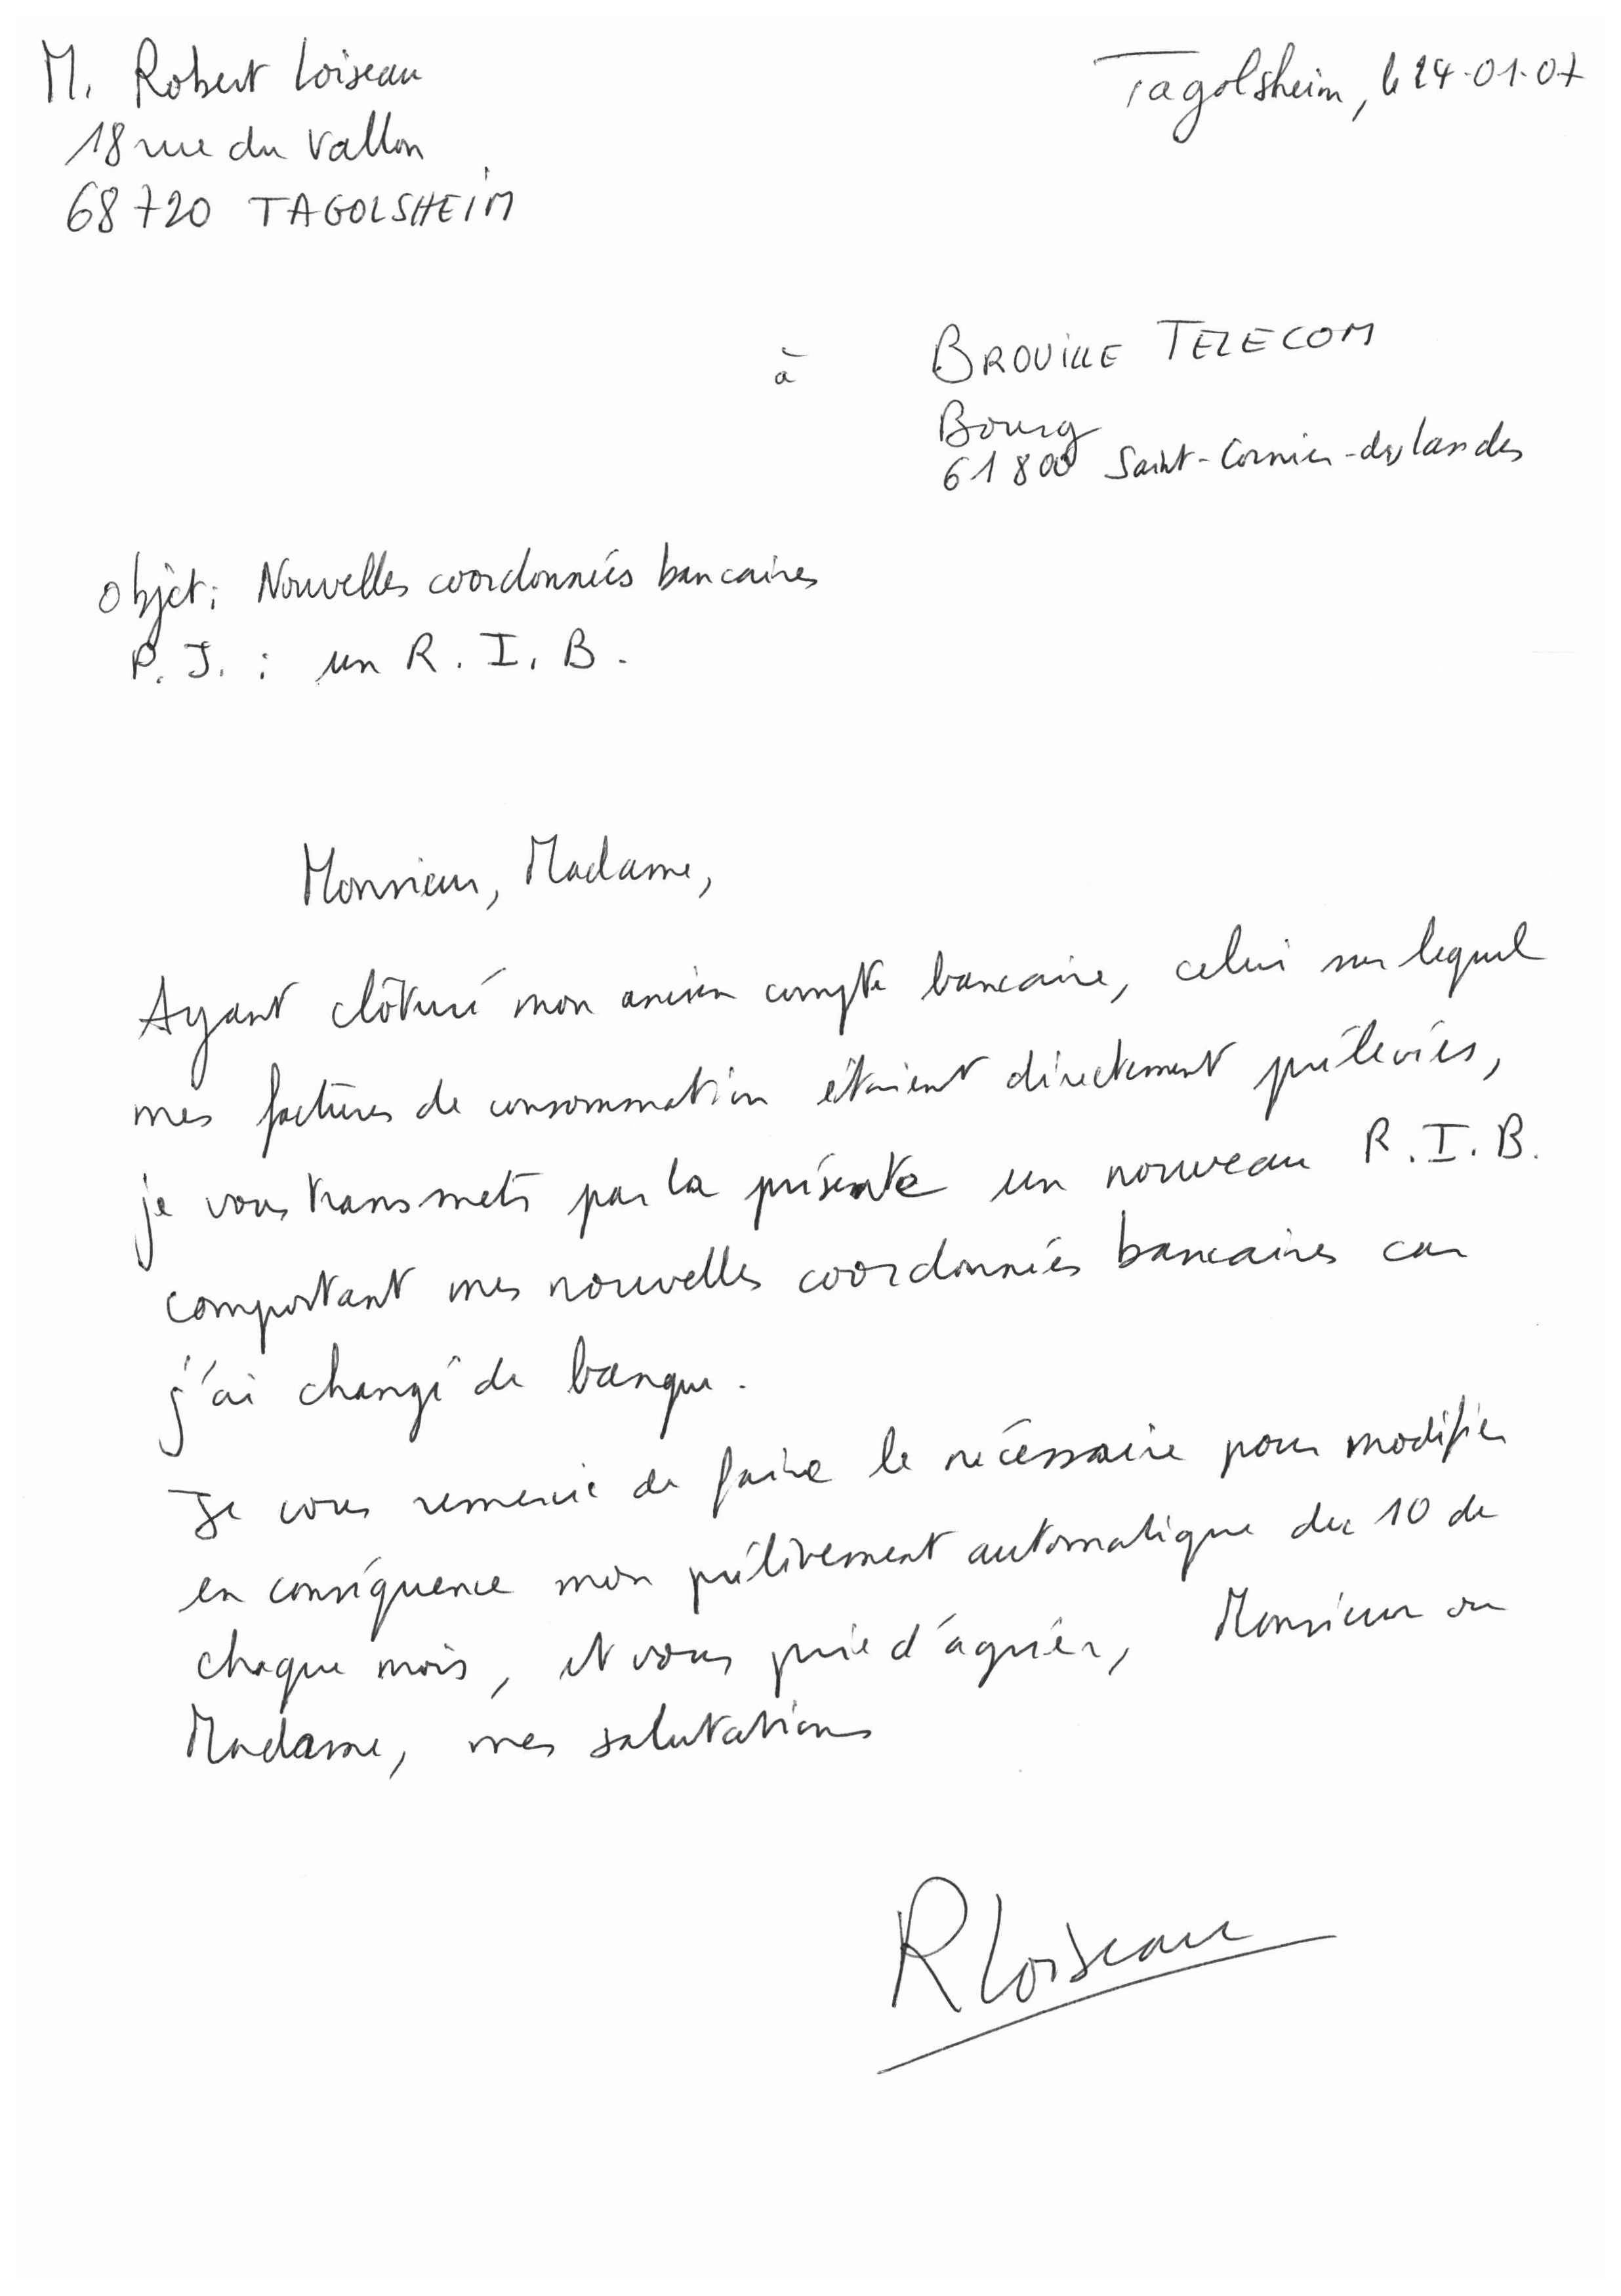 M. Robert Loiseau
18 rue du Vallon
68720 TAGOLSHEIM
Tagolsheim, le 24-01-07
à
BROUILLE TELECOM
Bourg
61800 Saint-Cornier-des landes
Objet : Nouvelles coordonnées bancaires
P.J. : un R.I.B.
Monsieur, Madame,
Ayant clôturé mon ancien compte bancaire, celui sur lequel
mes factures de consommation étaient directement prélevées,
je vous transmets par la présente un nouveau R.I.B.
comportant mes nouvelles coordonnées bancaires car
j'ai changé de banque.
Je vous remercie de faire le nécessaire pour modifier
en conséquence mon prélèvement automatique du 10 de
chaque mois, et vous prie d'agréer, Monsieur ou
Madame, mes salutations
R Loiseau